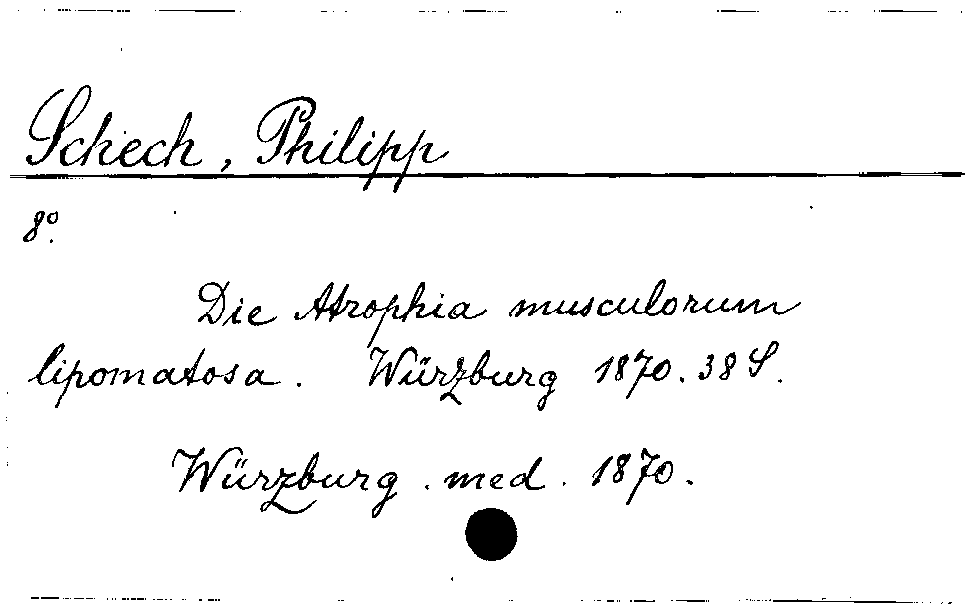 Schech, Philipp
8°.
Die Atrophia musculorum
lipomatosa. Würzburg 1870. 38 S.
Würzburg. med. 1870.